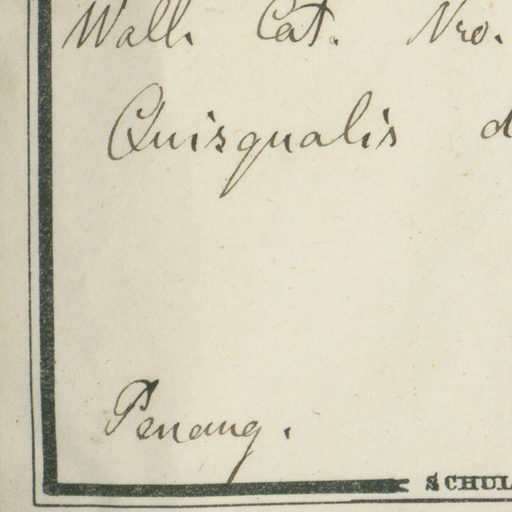 Wall. Cat. Nro.
Quisqualis d
Penang.
SCHUL